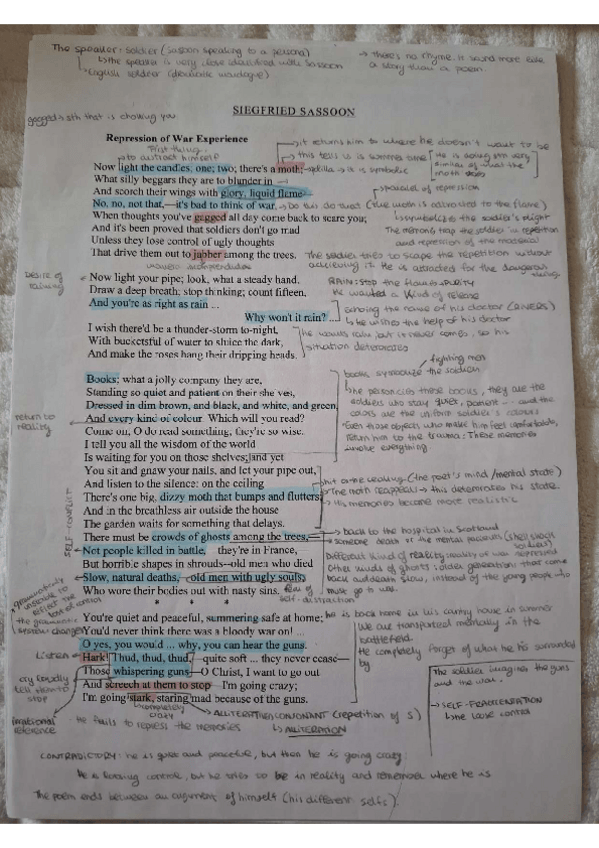 The speaker: Soldier (Sassoon speaking to a persona)
the speaker is very close identified with Sassoon
English soldier (dramatic monologue)
→ there's no rhyme. It sound more like
a story than a poem.
SIEGFRIED SASSOON
gagged: moth that is choking you
Repression of War Experience
First thing
to distract himself
it returns him to where he doesn't want to be
this tells us is summer time
He is doing sth very
similar of what the
moth does
Now light the candles; one; two; there's a moth;
it is symbolic
What silly beggars they are to blunder in
And scorch their wings with glory, liquid flame—
parallel of repression
No, no, not that,—it's bad to think of war,
(the moth is attracted to the flame)
When thoughts you've gagged all day come back to scare you;
symbolizes the soldier's plight
And it's been proved that soldiers don't go mad
The memory trap the soldier in repetition
Unless they lose control of ugly thoughts
and repression of the material
That drive them out to jabber among the trees.
The soldier tries to scape the repetition without
achieving it. He is attracted for the dangerous
Desire of
Now light your pipe; look, what a steady hand.
RAIN: stop the flames → purity
Draw a deep breath; stop thinking; count fifteen,
He wanted a kind of release
And you're as right as rain ...
echoing the name of his doctor (RIVERS)
Why won't it rain? ...
the help of his doctor
I wish there'd be a thunder-storm to-night,
he wants rain but it never comes, so his
With bucketsful of water to sluice the dark,
situation deteriorates
And make the roses hang their dripping heads.
fighting men
Books; what a jolly company they are,
books symbolize the soldiers
Standing so quiet and patient on their shelves,
he personifies these books, they are the
Dressed in dim brown, and black, and white, and green,
soldiers who stay quiet, patient ... and the
colors are the uniform soldier's colours
return to
reality
And every kind of colour. Which will you read?
Even those objects who make him feel comfortable,
Come on; O do read something; they're so wise.
return him to the trauma: These memories
I tell you all the wisdom of the world
involve everything.
Is waiting for you on those shelves; and yet
You sit and gnaw your nails, and let your pipe out,
(the poet's mind / mental state)
And listen to the silence: on the ceiling
The moth reappears → this deteriorates his state.
There's one big, dizzy moth that bumps and flutters;
His memories become more realistic
And in the breathless air outside the house
The garden waits for something that delays.
back to the hospital in Scotland
SELF-CONFLICT
There must be crowds of ghosts among the trees,—
someone death or the mental patients (shell shock
soldiers)
Not people killed in battle,— they're in France,—
Different kind of reality, reality of war repressed
But horrible shapes in shrouds--old men who died
Other kinds of ghosts: older generations that come
Slow, natural deaths,—old men with ugly souls,
back and death slow, instead of the young people
Who wore their bodies out with nasty sins.
must go to war.
self-distraction
* * *
he is back home in his country house in summer
You're quiet and peaceful, summering safe at home;
We are transported mentally in the
battlefield.
You'd never think there was a bloody war on! ...
O yes, you would ... why, you can hear the guns.
He completely forget of what he is surrounded
by
Listen
Hark! Thud, thud, thud,—quite soft ... they never cease—
The soldier imagines the guns
and the war.
Those whispering guns—O Christ, I want to go out
cry loudly
tell them to
stop
And screech at them to stop—I'm going crazy;
→ SELF-FRAGMENTATION
I'm going stark, staring mad because of the guns.
he lose control
completely
crazy
irrational
reference
He fails to repress the memories
ALLITERATION CONSONANT (repetition of S)
ALLITERATION
CONTRADICTORY: he is quiet and peaceful, but then he is going crazy
He is loosing control, but he tries to be in reality and remember where he is
The poem ends between an argument of himself (his different selfs).